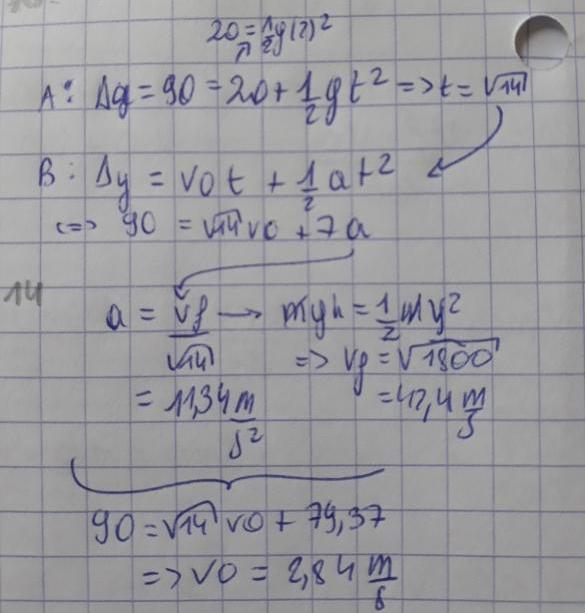 20 = 1/2 g(2)²
A: Δy = 90 = 20 + 1/2 g t² => t = √14
B: Δy = v0 t + 1/2 a t²
<=> 90 = √14 v0 + 7a
14
a = vf/√14 → mgh = 1/2 m v²
=> vf = √1800
= 11,34 m/s²
= 42,4 m/s
90 = √14 v0 + 79,37
=> v0 = 2,84 m/s